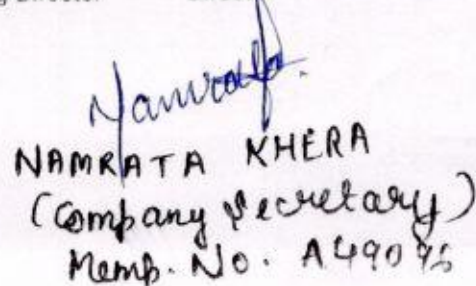 Namrata
NAMRATA KHERA
(Company Secretary)
Memb. No. A49096